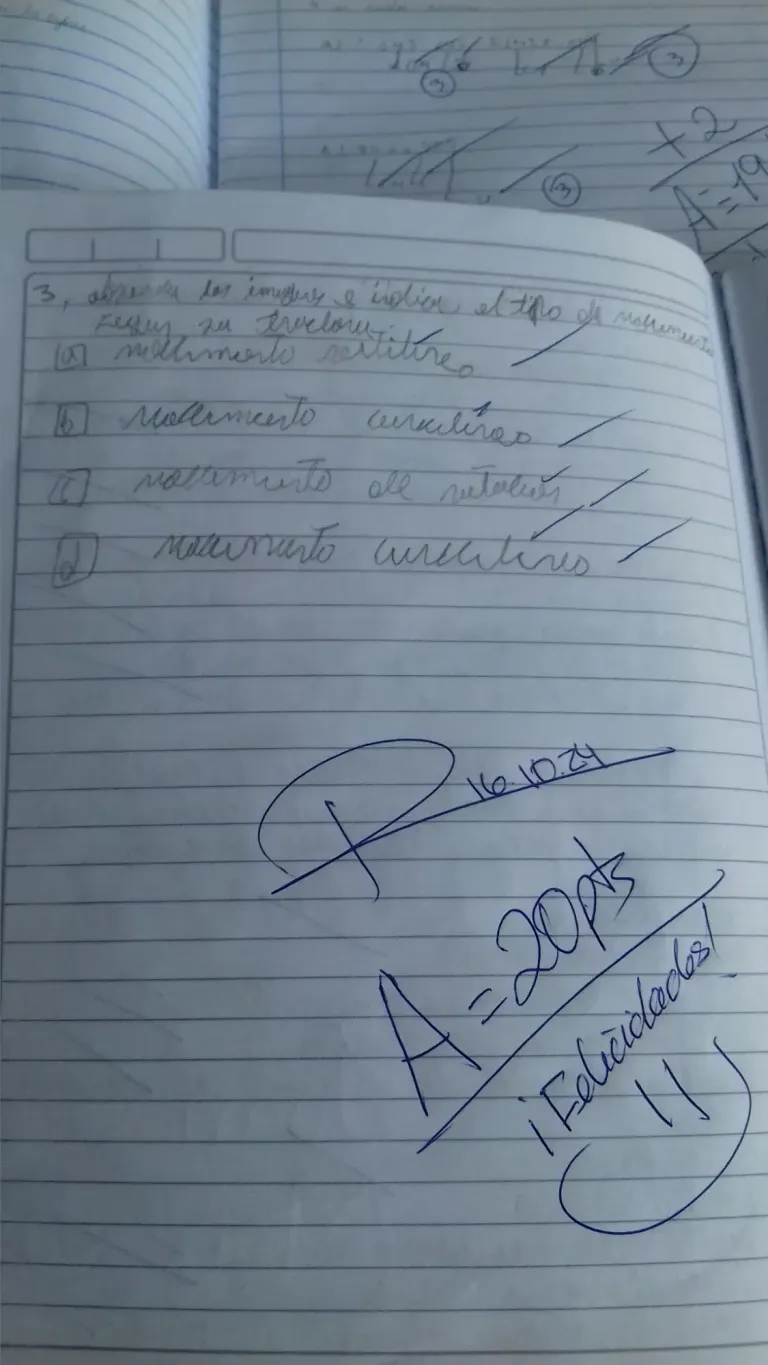 +2
A=19
3, observa las imagenes e indica el tipo de movimiento
segun su trayectoria.
a) movimiento rectilíneo
b) movimiento curvilíneo
c) movimiento de rotación
d) movimiento curvilíneo
16.10.24
A=20pts
¡Felicidades!